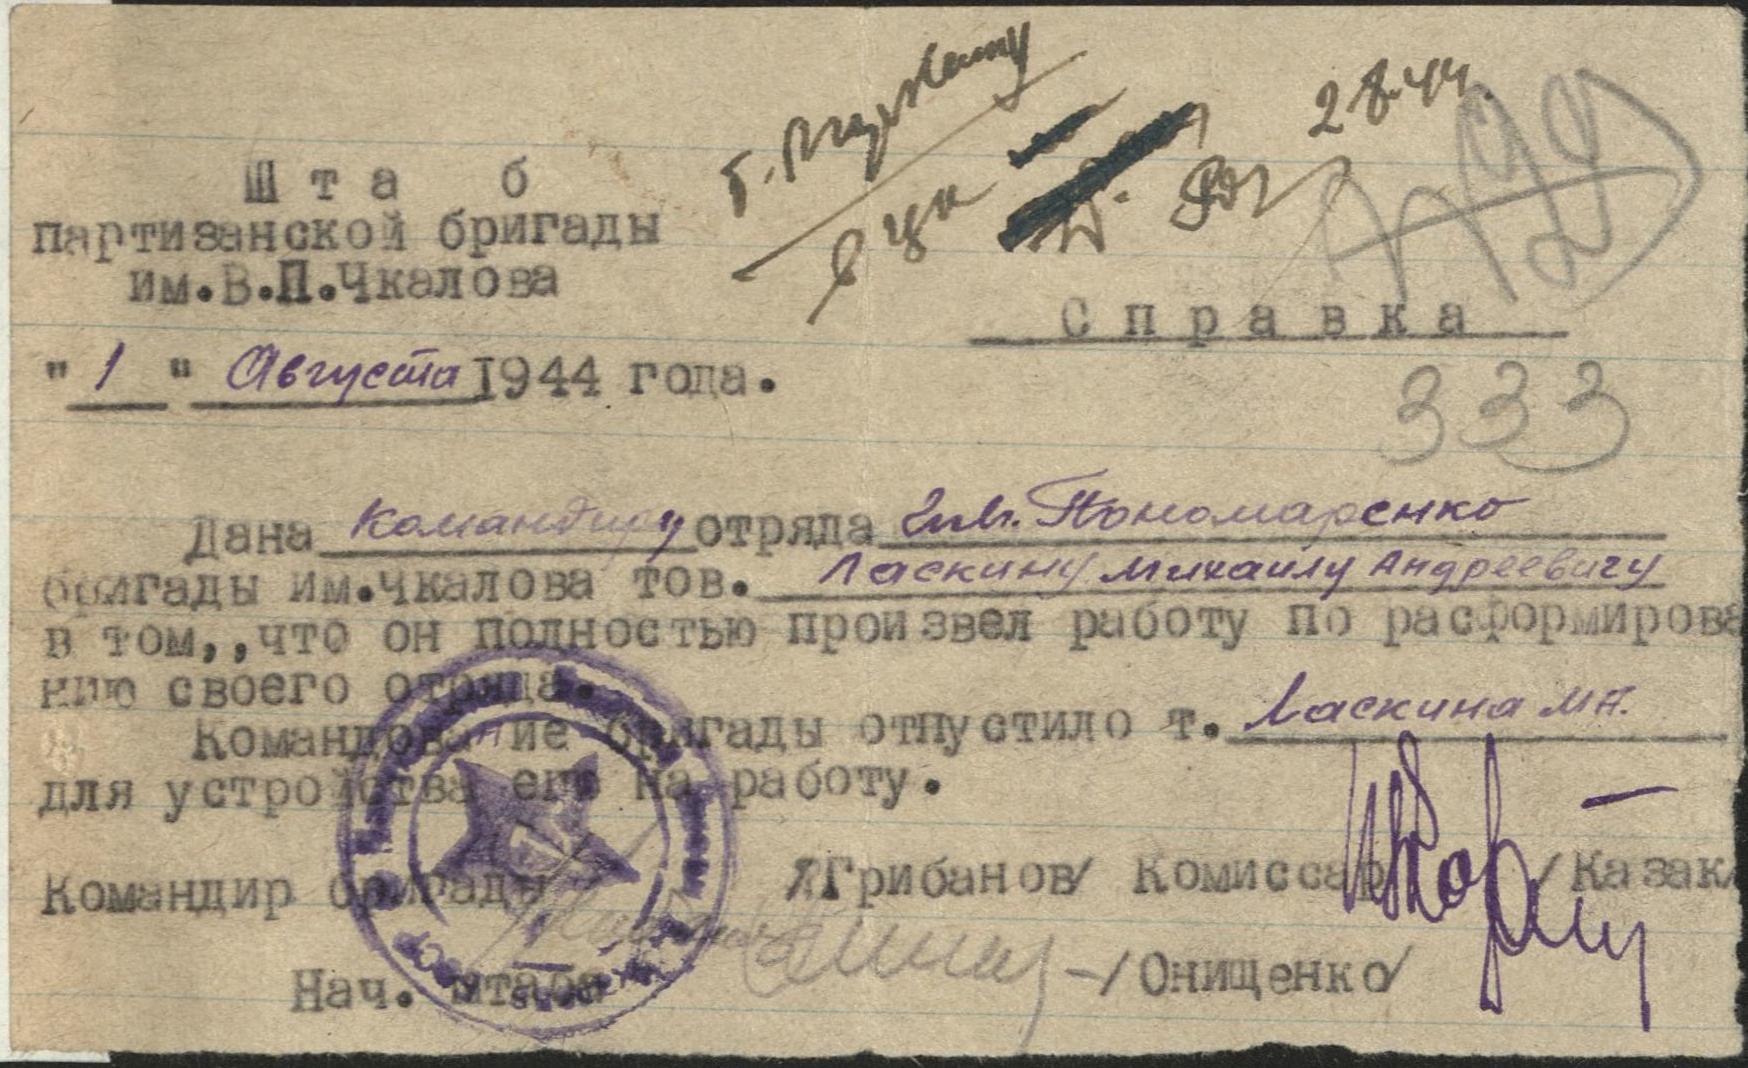 Ш т а б
партизанской бригады
им.В.П.Чкалова
" 1 " Августа 1944 года.
28.44.
С п р а в к а
333
Дана Командиру отряда им. Пономаренко
бригады им.Чкалова тов. Ласкину Михаилу Андреевичу
в том,,что он полностью произвел работу по расформирова
нию своего отряда.
Командование бригады отпустило т. Ласкина М А.
для устройства его на работу.
Командир бригады /Грибанов/ Комиссар /Казак
Нач. штаба -/Онищенко/